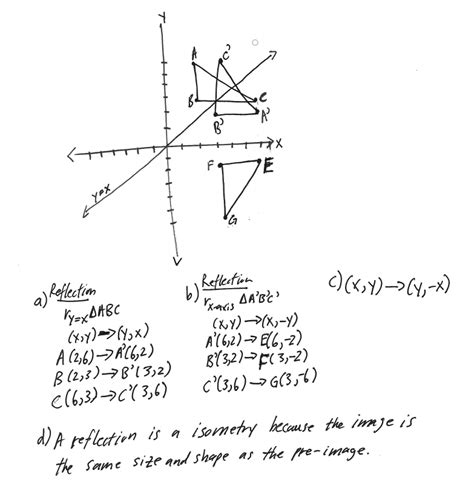 Y
A
C'
B
C
B'
A'
X
F
E
y=x
G
a) Reflection
r y=x ΔABC
(x,y)→(y,x)
A(2,6)→A'(6,2)
B(2,3)→B'(3,2)
C(6,3)→C'(3,6)
b) Reflection
r x-axis ΔA'B'C'
(x,y)→(x,-y)
A'(6,2)→E(6,-2)
B'(3,2)→F(3,-2)
C'(3,6)→G(3,-6)
c) (x,y)→(y,-x)
d) A reflection is a isometry because the image is
the same size and shape as the pre-image.